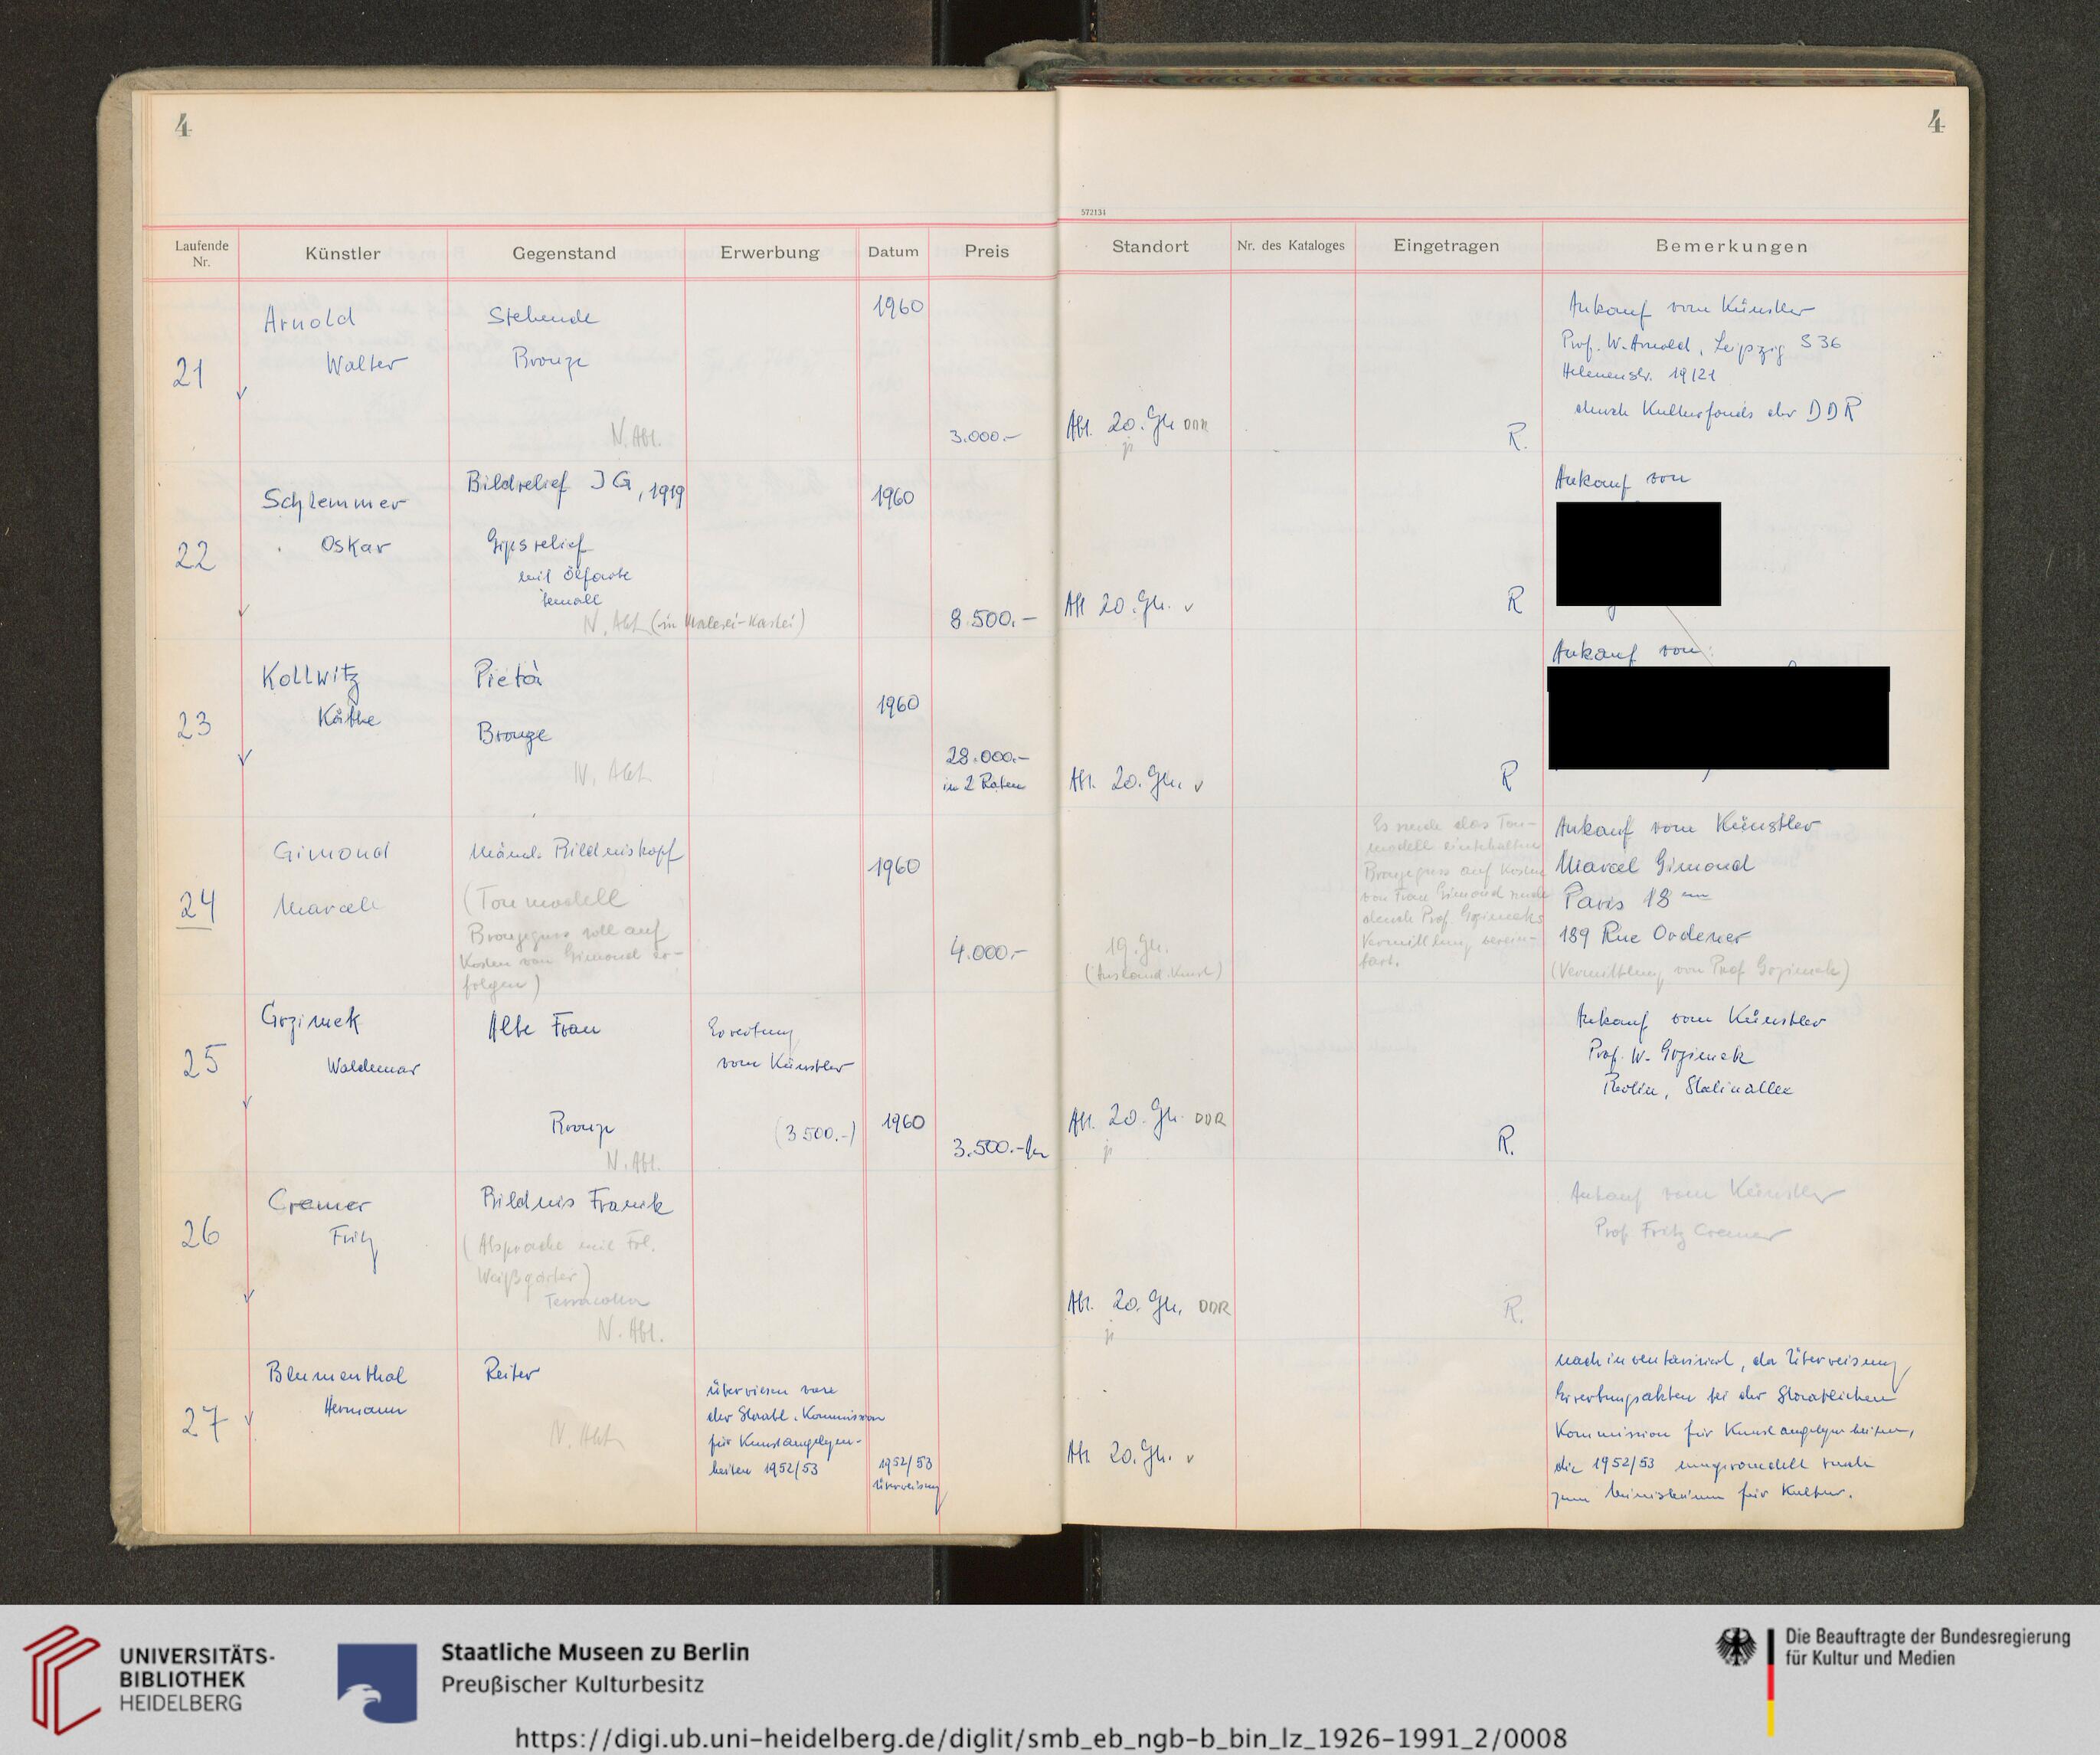 4
4
572134
Laufende Nr.
Künstler
Gegenstand
Erwerbung
Datum
Preis
Standort
Nr. des Kataloges
Eingetragen
Bemerkungen
21
Arnold
Walter
Stehende
Bronze
N. Abt.
1960
3.000.-
Abt. 20. Jh. DDR
R.
Ankauf vom Künstler
Prof. W. Arnold, Leipzig S 36
Helenenstr. 19/21
durch Kulturfonds der DDR
22
Schlemmer
Oskar
Bildrelief JG, 1919
Gipsrelief
mit Ölfarbe
bemalt
N. Abt. (in Malerei-Kartei)
1960
8.500.-
Abt. 20. Jh. v
R
Ankauf von
23
Kollwitz
Käthe
Pietà
Bronze
N. Abt.
1960
28.000.-
in 2 Raten
Abt. 20. Jh. v
R
Ankauf von:
24
Gimond
Marcel
Männl. Bildniskopf
(Tonmodell
Bronzeguss soll auf
Kosten von Gimond er-
folgen)
1960
4.000.-
19. Jh.
(Ausland. Kunst)
Es wurde das Ton-
modell einbehalten
Bronzeguss auf Kosten
von Frau Gimond wurde
durch Prof. Grzimeks
Vermittlung verein-
bart.
Ankauf vom Künstler
Marcel Gimond
Paris 18 em
189 Rue Ordener
(Vermittlung von Prof. Grzimek)
25
Grzimek
Waldemar
Alte Frau
Bronze
N. Abt.
Erwerbung
vom Künstler
(3500.-)
1960
3.500.-
Abt. 20. Jh. DDR
R.
Ankauf vom Künstler
Prof. W. Grzimek
Berlin, Stalinallee
26
Cremer
Fritz
Bildnis Franck
(Absprache mit Frl.
Weißgärber)
Terracotta
N. Abt.
Abt. 20. Jh. DDR
R.
Ankauf vom Künstler
Prof. Fritz Cremer
27
Blumenthal
Hermann
Reiter
N. Abt.
überwiesen von
der Staatl. Kommission
für Kunstangelegen-
heiten 1952/53
1952/53
Überweisung
Abt. 20. Jh. v
nachinventarisiert, da Überweisung
Erwerbungsakten bei der Staatlichen
Kommission für Kunstangelegenheiten,
die 1952/53 umgewandelt wurde
zum Ministerium für Kultur.
UNIVERSITÄTS-
BIBLIOTHEK
HEIDELBERG
Staatliche Museen zu Berlin
Preußischer Kulturbesitz
Die Beauftragte der Bundesregierung
für Kultur und Medien
https://digi.ub.uni-heidelberg.de/diglit/smb_eb_ngb-b_bin_lz_1926-1991_2/0008